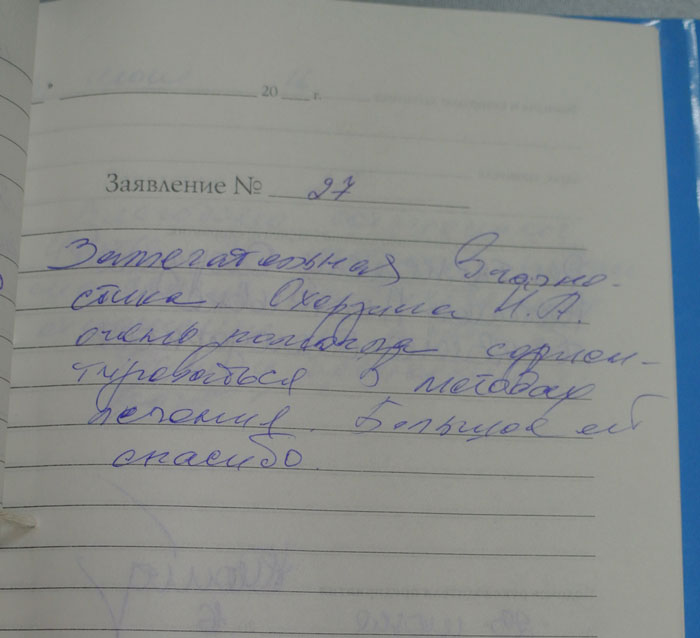 20 г.
Заявление № 27
Замечательная диагно-
стика. Охерзина Н.А.
очень помогла сориен-
тироваться в методах
лечения. Большое ей
спасибо.